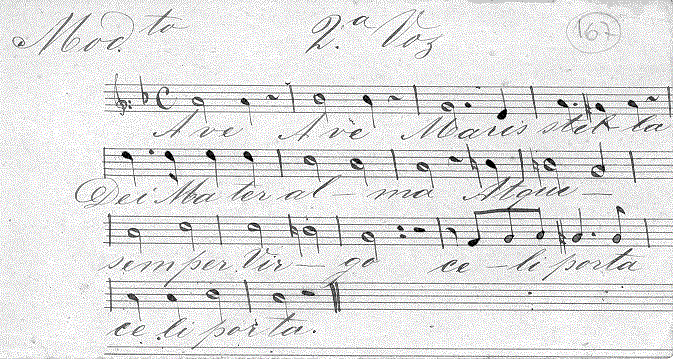 Mod.to 2.a Voz 167
A ve A ve Maris stel la
Dei Ma ter al - ma Atque -
semper Vir - go ce - li porta
ce li porta.